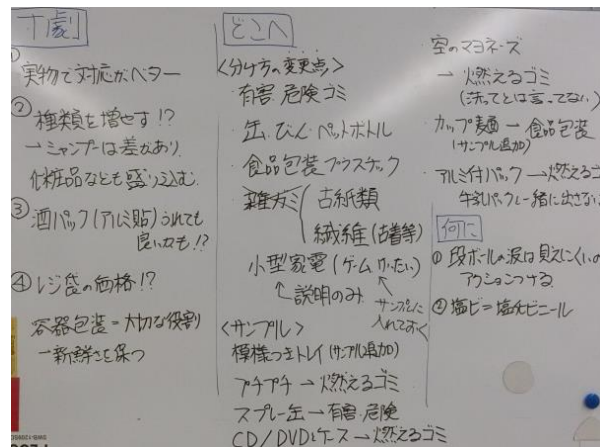 寸劇
①
実物で対応がベター
② 種類を増やす!?
→シャンプーは差があり
化粧品なども盛り込む。
③ 酒パック(アルミ貼)うれても
良いかも!?
④ レジ袋の価格!?
容器包装=大切な役割
→新鮮さを保つ
どこへ
<分け方の変更点>
・有害・危険ゴミ
・缶・びん・ペットボトル
・食品包装プラスチック
・雑ガミ 古紙類
繊維(古着等)
小型家電(ゲーム けいたい)
↖説明のみ
サンプルに
入れておく
<サンプル>
模様つきトレイ(サンプル追加)
プチプチ→燃えるゴミ
スプレー缶→有害・危険
CD/DVDとケース→燃えるゴミ
空のマヨネーズ
→ 燃えるゴミ
(洗ってとは言ってない)
・カップ麺→食品包装
(サンプル追加)
・アルミ付パック→燃えるゴ
牛乳パックと一緒に出さない
何に
① 段ボールの波は見えにくいの
アクションつける。
② 塩ビ=塩化ビニール